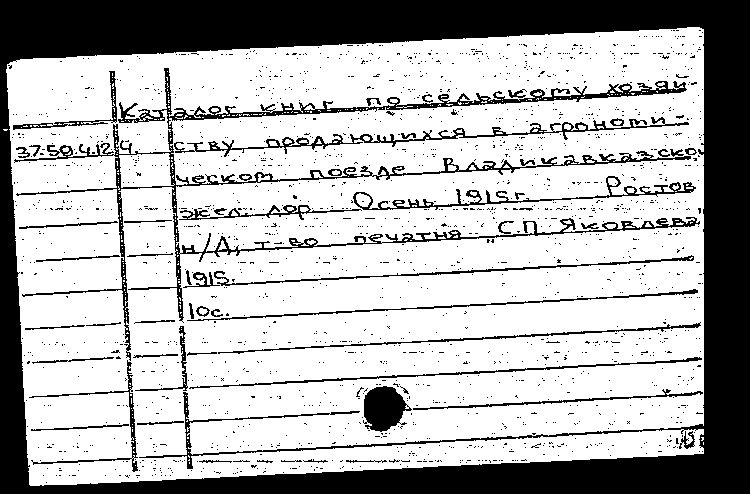 Каталог книг по сельскому хозяй-
37.50.4.12 4. ству, продающихся в агрономи-
ческом поезде Владикавказской
жел. дор. Осень, 1915г. Ростов
н/Д, т-во печатня "С.П. Яковлева"
1915.
10с.